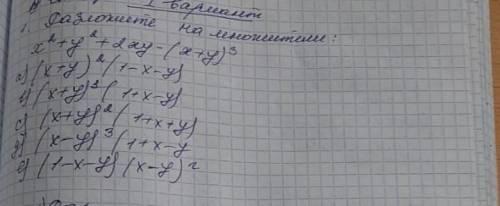 1 вариант
1. Разложите на множители:
x² + y² + 2xy - (x+y)³
a) (x+y)² (1-x-y)
b) (x+y)² (1+x-y)
c) (x+y)² (1+x+y)
d) (x-y)³ (1+x-y
e) (1-x-y) (x-y)²